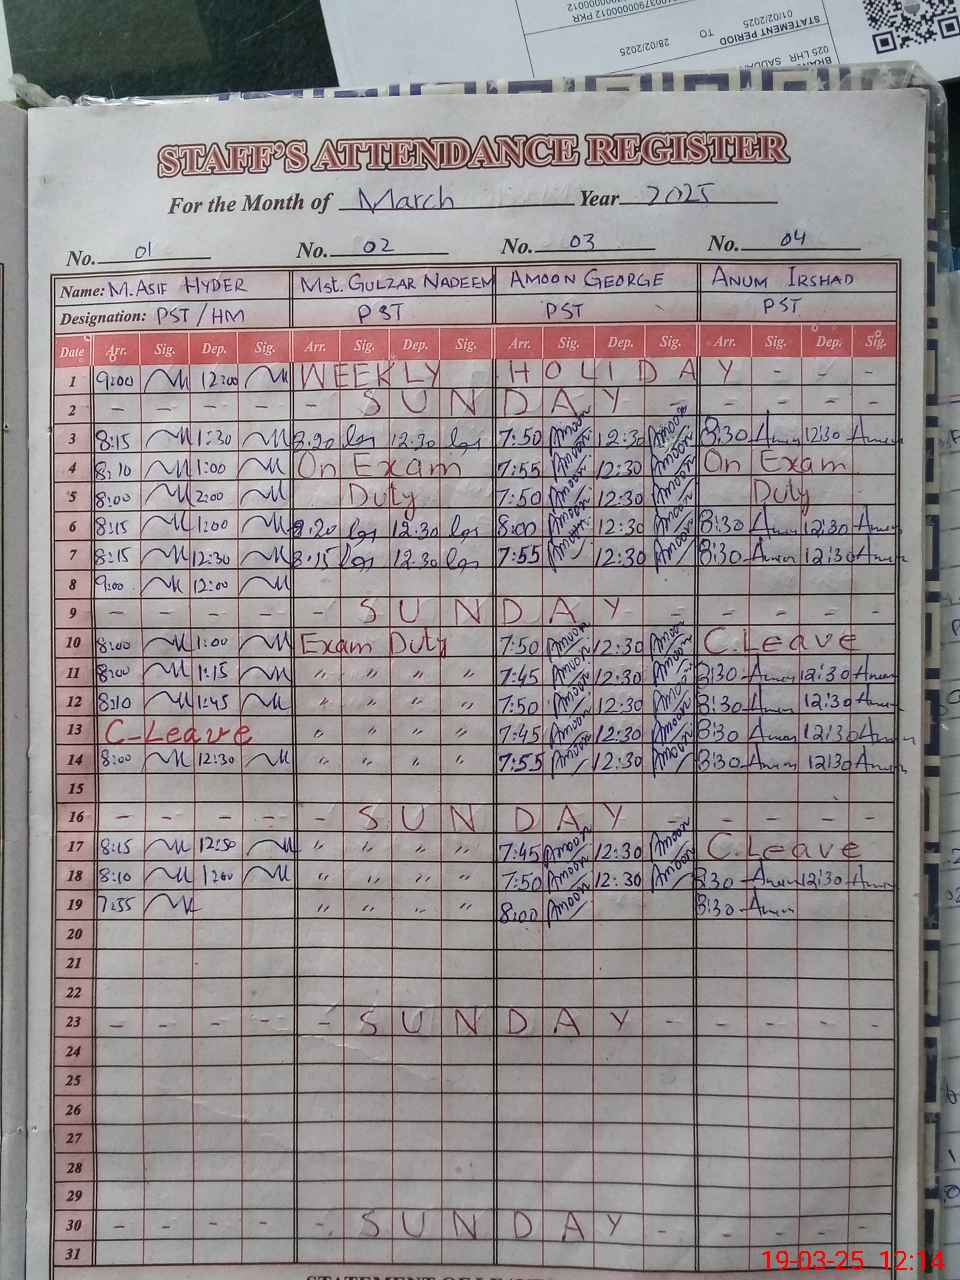 10037900000012 PKR
000012
STATEMENT PERIOD
01/02/2025 TO 28/02/2025
025 LHR
STAFF'S ATTENDANCE REGISTER
For the Month of March Year 2025
No. 01 No. 02 No. 03 No. 04
Name: M. ASIF HYDER Mst. GULZAR NADEEM AMOON GEORGE ANUM IRSHAD
Designation: PST / HM PST PST PST
Date Arr. Sig. Dep. Sig. Arr. Sig. Dep. Sig. Arr. Sig. Dep. Sig. Arr. Sig. Dep. Sig.
1 9:00 12:00 WEEKLY HOLIDAY - - -
2 - - - - - SUNDAY - - - - -
3 8:15 1:30 8:20 12:30 7:50 Amoon 12:30 Amoon 8:30 Anum 12:30 Anum
4 8:10 1:00 On Exam 7:55 Amoon 12:30 Amoon On Exam
5 8:00 2:00 Duty 7:50 Amoon 12:30 Amoon Duty
6 8:15 1:00 8.20 12.30 8:00 Amoon 12:30 Amoon 8:30 Anum 12:30 Anum
7 8:15 12:30 8:15 12.30 7:55 Amoon 12:30 Amoon 8:30 Anum 12:30 Anum
8 9:00 12:00
9 - - - - - SUNDAY - - - - -
10 8:00 1:00 Exam Duty 7:50 Amoon 12:30 Amoon C.Leave
11 8:00 1:15 " " " " 7:45 Amoon 12:30 Amoon 8:30 Anum 12:30 Anum
12 8:10 1:45 " " " " 7:50 Amoon 12:30 Amoon 8:30 Anum 12:30 Anum
13 C-Leave " " " " 7:45 Amoon 12:30 Amoon 8:30 Anum 12:30 Anum
14 8:00 12:30 " " " " 7:55 Amoon 12:30 Amoon 8:30 Anum 12:30 Anum
15
16 - - - - - SUNDAY - - - - -
17 8:15 12:50 " " " " 7:45 Amoon 12:30 Amoon C.Leave
18 8:10 1:00 " " " " 7:50 Amoon 12:30 Amoon 8:30 Anum 12:30 Anum
19 7:55 " " " " 8:00 Amoon 8:30 Anum
20
21
22
23 - - - - - SUNDAY - - - - -
24
25
26
27
28
29
30 - - - - - SUNDAY - - - - -
31
19-03-25 12:14